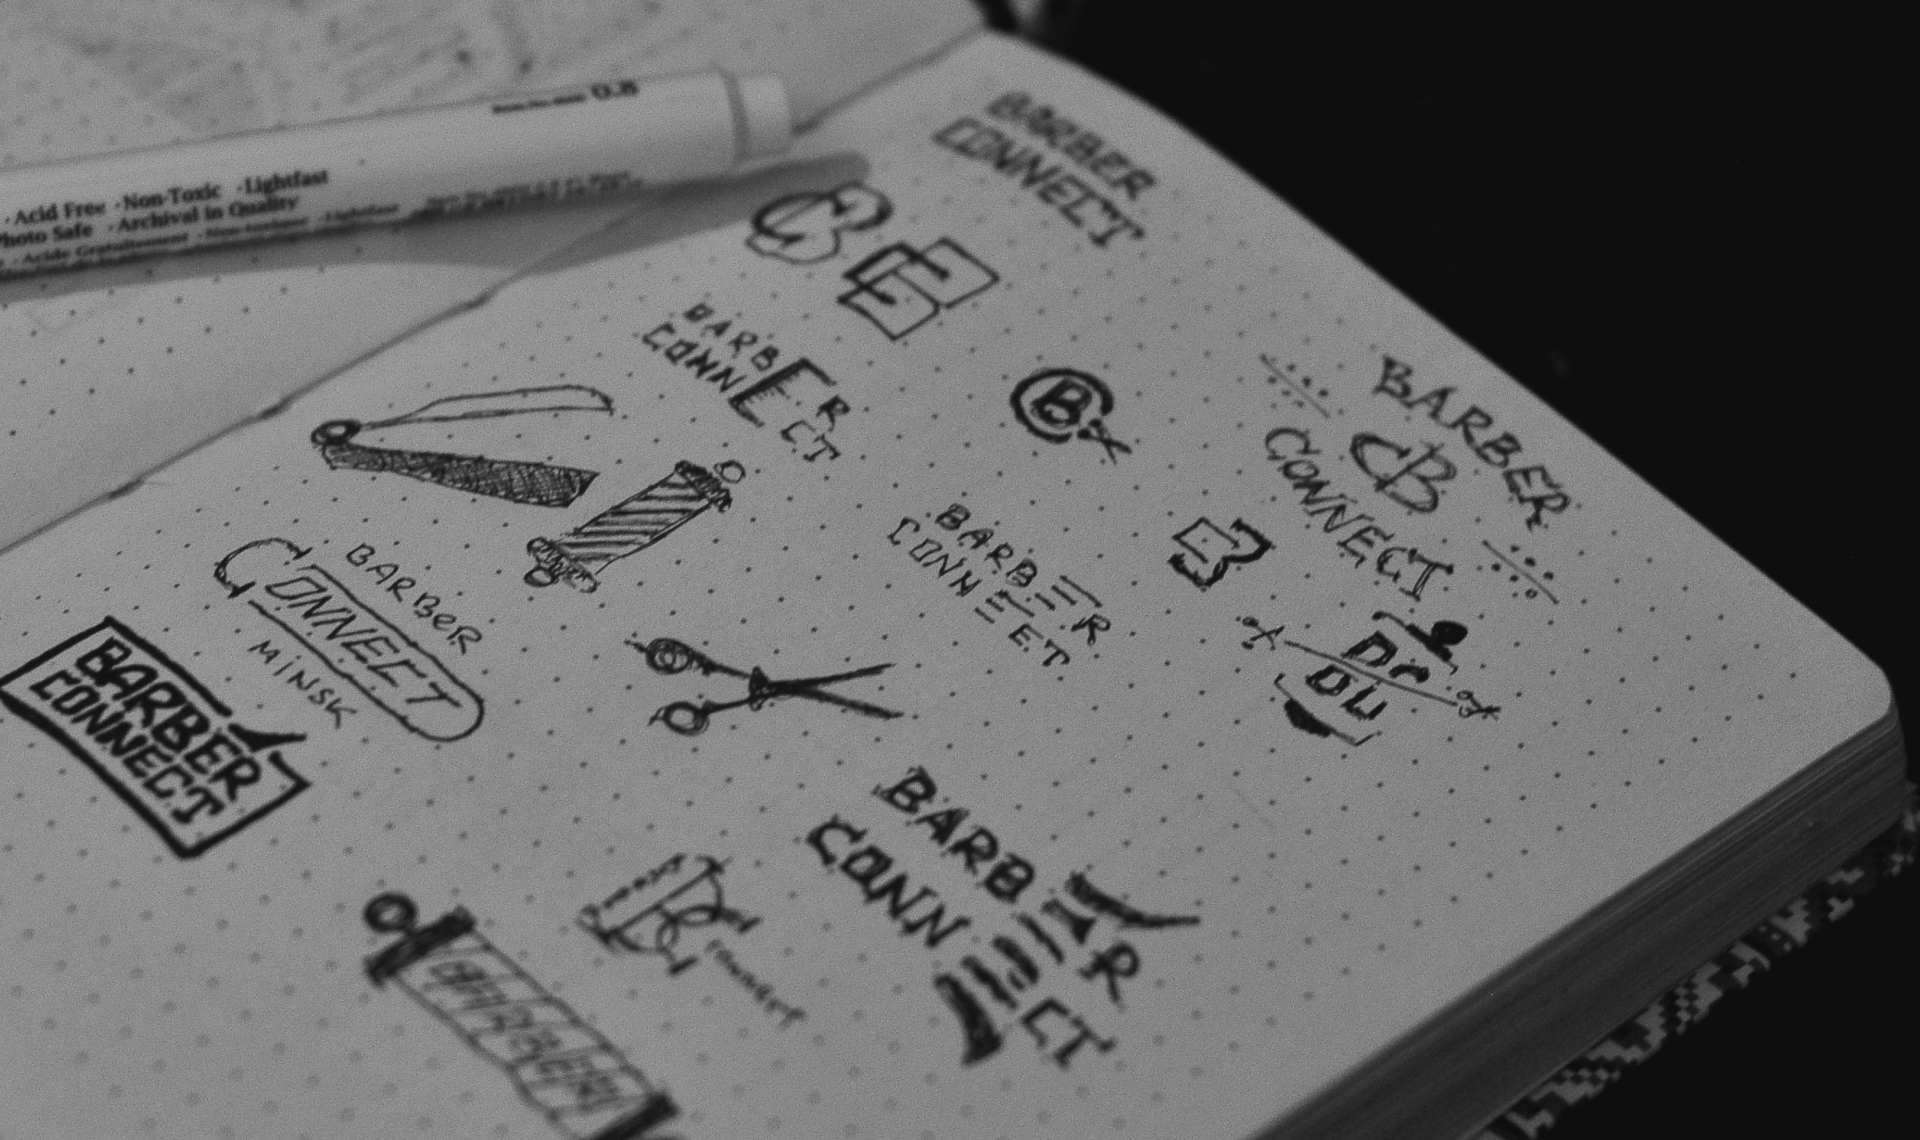 0.8
·Acid Free ·Non-Toxic ·Lightfast
Photo Safe ·Archival in Quality
·Acide Gratuitement ·Non-toxique ·Lightfast
BARBER
CONNECT
CB
BARBER
CONNECT
B
BARBER
CB
CONNECT
BARBER
CONNECT
BARBER
CONNECT
MINSK
BARBER
CONNECT
BARBER
CONNECT
BARBER
CONNECT